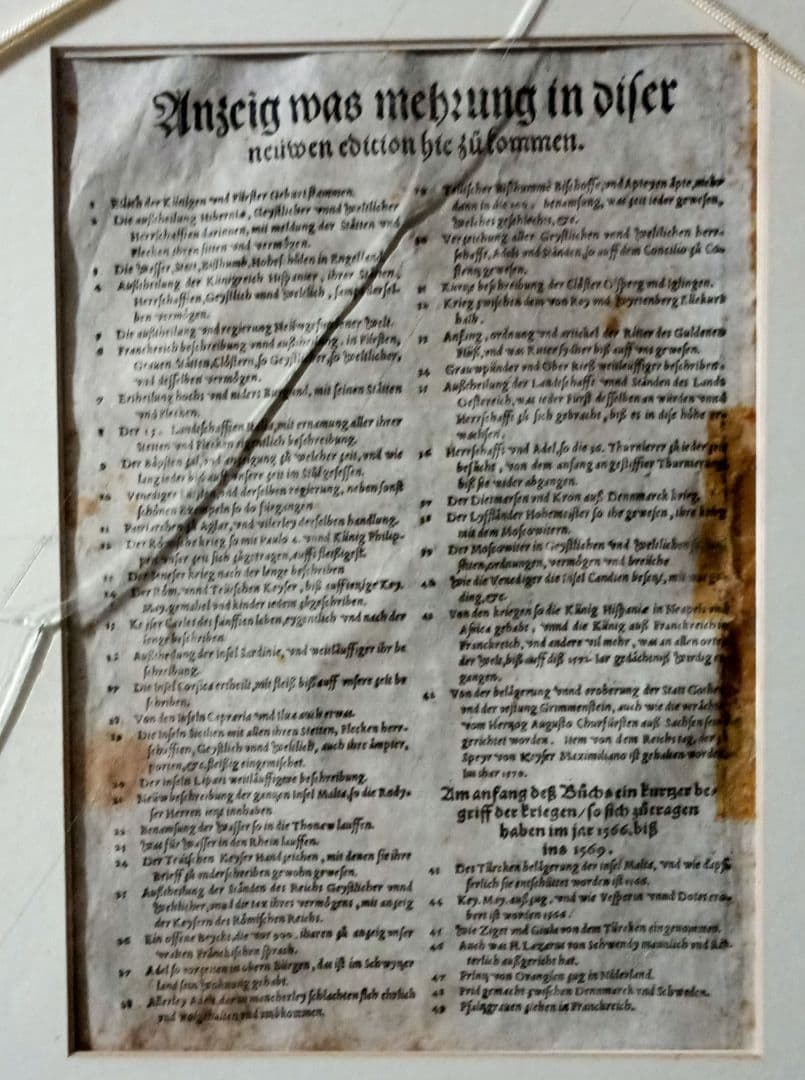 Anzeig was mehrung in diser
neüwen edition hie zůkommen.
1 der Künigen vnd Fürsten Geburtstammen.
2 Die außtheilung Hibernie, Geystlicher vnnd Weltlicher
Herrschafften darinnen, mit meldung der Stätten vnd
Flecken ihren sitten vnd vermögen.
3 Die Wasser, Stett, Bisthumb, in Engelland
4 Außtheilung der Künigreich Hispanien, ihrer Stätten,
Herrschafften, Geystlich vnnd Weltlich,
ben vermögen.
5 Die außtheilung vnd regierung Welt.
6 Franckreich beschreibung vnnd in Fürsten,
Grauen Stätten, Clöstern, so Weltlicher,
vnd desselben vermögen.
7 Ertheilung hochs vnd niders mit seinen Stätten
vnd Flecken.
8 Der Landschafften mit ernamung aller ihrer
Stetten vnd Flecken eigentlich beschreibung.
9 Der Bäpsten zal, zů welcher zeit, vnd wie
lang ieder biß auff vnsere zeit im Stůl gesessen.
10 Venediger derselben regierung, neben sonst
schönen so do fürgangen
11 Patriarchen zů Agler, vnd derselben handlung.
12 Der so mit Paulo 4. vnnd Künig Philip-
vnser zeit sich zůgetragen, auffs fleißigest.
13 Der krieg nach der lenge beschriben
14 Der Röm. vnnd Teütschen Keyser, biß auff ienige Key.
May. gemahel vnd kinder iedem zůgeschriben.
15 Keyser Carles des fünfften leben, eygentlich vnd nach der
lenge beschriben.
16 Außtheilung der Insel Sardinie, vnd weitläuffiger ihr be
schreibung.
17 Die Insel Corsica ertheilt, mit fleiß biß auff vnsere zeit be
schriben.
18 Von den Inseln Capraria vnd Ilua auch etwas.
19 Die Inseln Sicilien mit allen ihren Stetten, Flecken herr-
schafften, Geystlich vnnd Weltlich, auch ihre ämpter,
porten, etc. fleißig eingemischet.
20 Der inseln Lipari weitläuffigere beschreibung.
21 Neüw beschreibung der gantzen Insel Malta, so die Rody-
ser Herren ietzt innhaben
22 Benamsung der Wasser so in die Thonaw lauffen.
23 Was für Wasser in den Rhein lauffen.
24 Der Teütschen Keyser Handzeichen, mit denen sie ihre
Brieff zů onderschreiben gewohn gewesen.
25 Außtheilung der Ständen des Reichs Geystlicher vnnd
Weltlicher, vnd die tax ihres vermögens, mit anzeig
der Keysern des Römischen Reichs.
26 Ein offene Beycht, die vor 900. iharen zů anzeig vnser
vralten Fränckischen sprach.
27 Adel so vorzeiten in obern Bürgen, das ist im Schwytzer
land sein wohnung gehabt.
28 Allerley Adel, der in mancherley schlachten sich ehrlich
vnd vnd vmbkommen.
Teütscher Bisthummē Bischoffe, vnd Apteyen Äpte, mehr
dann in die benamsung, was zeit ieder gewesen,
Welches geschlechts, etc.
30 Verzeichung aller Geystlichen vnnd Weltlichen herr-
schafft, Adels vnd Ständen, so auff dem Concilio zů Co-
stentz gewesen.
31 Kurtze beschreibung der Clöster vnd Eglingen.
32 Krieg zwischen dem von Roy vnd
halb.
33 Anfang, ordnung vnd artickel der Ritter des Guldenen
Flüß, vnd was Ritter sythar biß auff vns gewesen.
34 Grauwpünder vnd Ober Rieß weitläuffiger beschriben.
35 Außtheilung der Landschafft vnnd Ständen des Lands
Oesterreich, was ieder Fürst desselben an würden vnnd
Herrschafft zů sich gebracht, biß es in dise höhe er-
wachsen.
36 Herrschafft vnd Adel, so die 36. Thurnierer zů ieder zeit
besůcht, von dem anfang angestiffter Thurnieren
biß sie wider abgangen.
37 Der Dietmarsen vnd Kron auß Dennmarck krieg.
38 Der Lyffländer Hohemeister so ihe gewesen, ihre krieg
mit dem Moscowitern.
39 Der Moscowiter in Geystlichen vnd Weltlichen
ordnungen, vermögen vnd breüche
40 Wie die Venediger die insel Candien besetzt, mit
ding, etc.
41 Von den kriegen so die Künig Hispanie in Neapels vnd
Africa gehabt, vnnd die Künig auß Franckreich in
Franckreich, vnd andere vil mehr, was an allen orten
der Welt, biß auff diß 1572. Iar gedächtniß wirdig er-
gangen.
42 Von der belägerung vnnd eroberung der Statt Gotha
vnd der vestung Grimmenstein, auch wie die
vom Hertzog Augusto Churfürsten auß Sachsen
gerichtet worden. Item von dem Reichstag, der zů
Speyr von Keyser Maximiliano ist gehalten worden
im ihar 1570.
Am anfang deß Bůchs ein kurtzer be-
griff der kriegen / so sich zůtragen
haben im jar 1566. biß
ins 1569.
43 Des Türcken belägerung der insel Malta, vnd wie dapf-
ferlich sie entschüttet worden ist 1566.
44 Key. May. außzug, vnd wie Vesperin vnnd Dotes ero-
bert ist worden 1566.
45 Wie Ziget vnd Giula von dem Türcken eingenommen.
46 Auch was H. Lazarus von Schwendy mannlich vnd Rit-
terlich außgericht hat.
47 Printz von Orangien zug in Niderland.
48 Frid gemacht zwischen Dennmarck vnd Schweden.
49 Pfaltzgrauen ziehen in Franckreich.